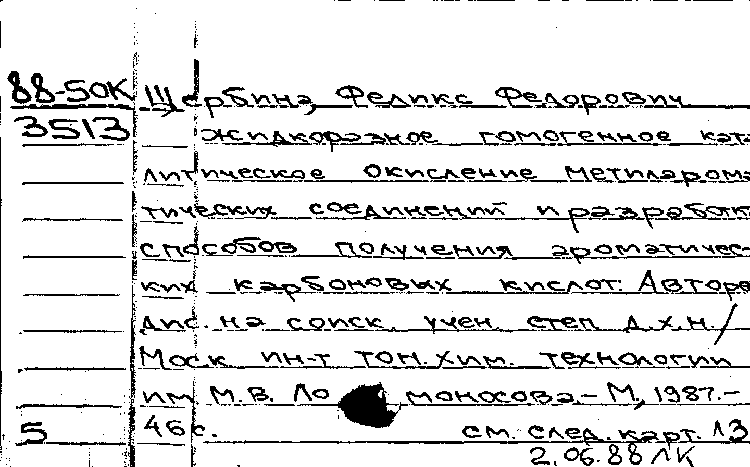 88-50К Щербина, Феликс Федорович
3513 Жидкофазное гомогенное ката
литическое окисление метиларома
тических соединений и разработк
способов получения ароматичес-
ких карбоновых кислот: Авторе
дис. на соиск. учен. степ. д.х.н./
Моск. ин-т тон. хим. технологии
им. М.В. Ломоносова.- М., 1987.-
5 46 с. см. след. карт. 13
2.06.88 ЛК